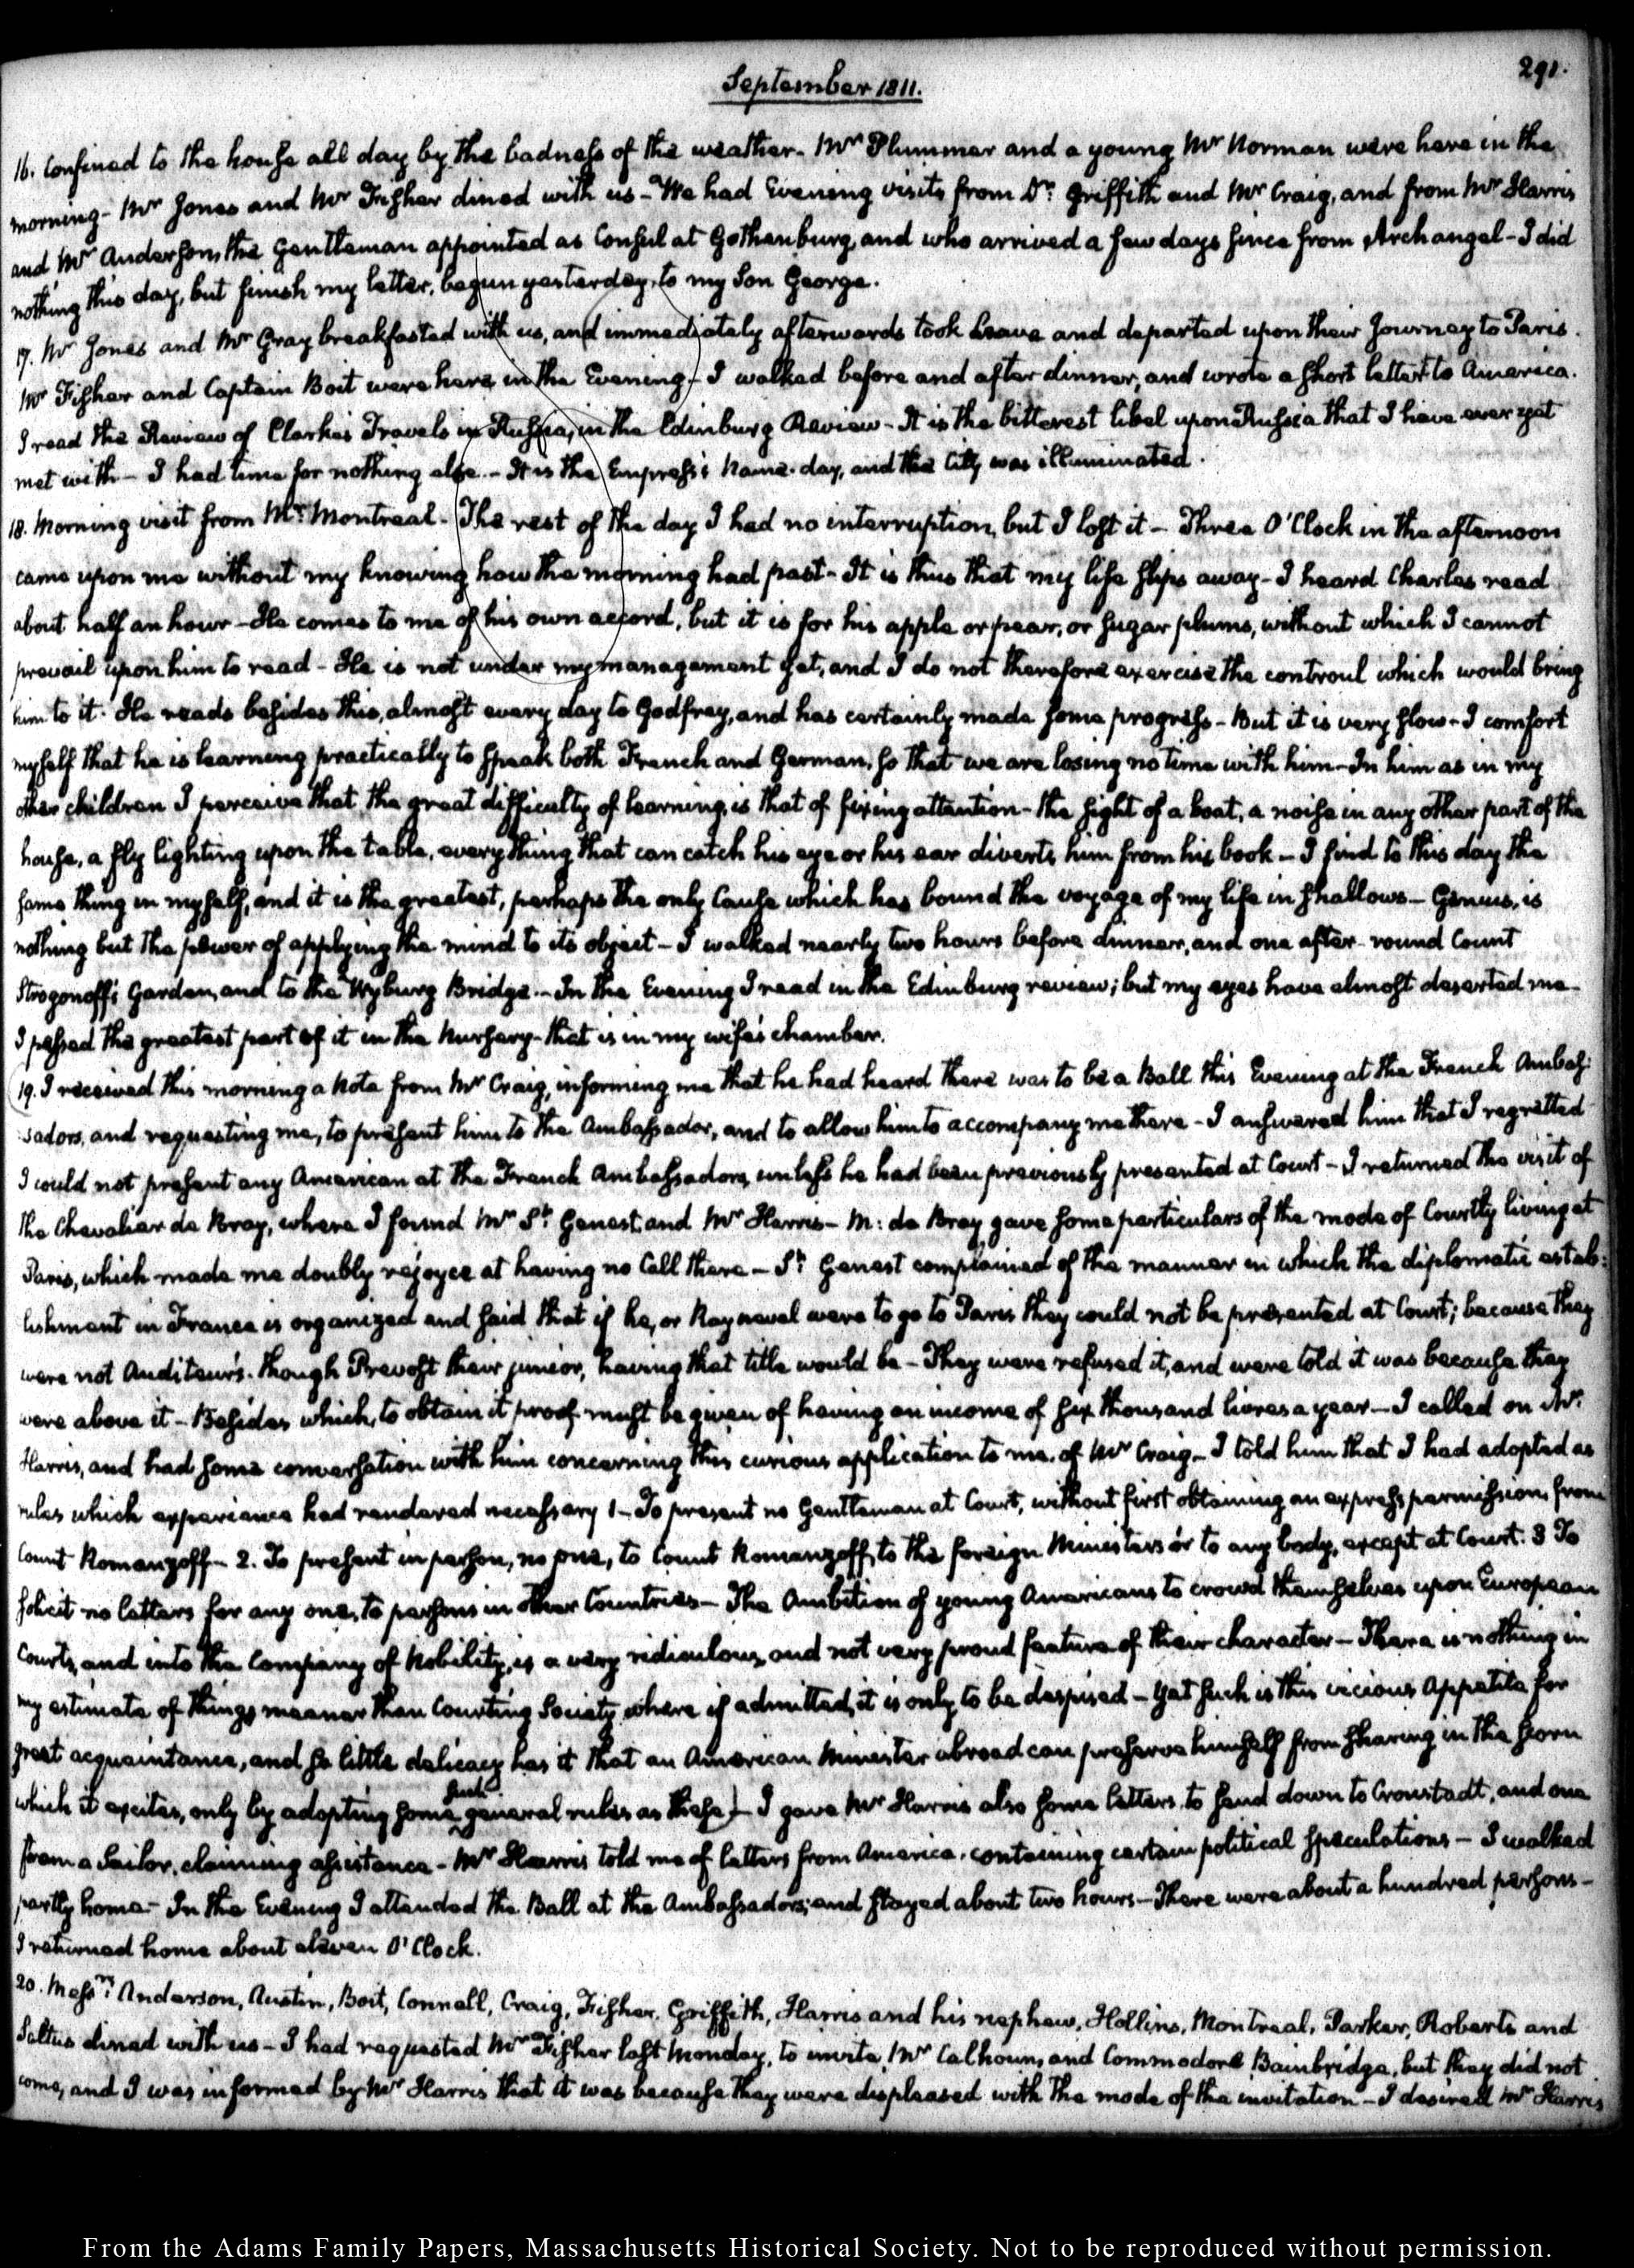 291.
September 1811.
16. Confined to the house all day by the badness of the weather. Mr Plummer and a young Mr Norman were here in the
morning - Mr Jones and Mr Fisher dined with us - We had Evening visits from Dr. Griffith and Mr Craig, and from Mr Harris
and Mr Anderson, the Gentleman appointed as Consul at Gothenburg, and who arrived a few days since from Archangel - I did
nothing this day, but finish my letter, begun yesterday, to my Son George.
17. Mr Jones and Mr Gray breakfasted with us, and immediately afterwards took leave and departed upon their Journey to Paris.
Mr Fisher and Captain Boit were here in the Evening - I walked before and after dinner, and wrote a short letter to America.
I read the Review of Clarke's Travels in Russia, in the Edinburg Review - It is the bitterest libel upon Russia that I have ever yet
met with - I had time for nothing else - It is the Empress's name-day, and the City was illuminated.
18. Morning visit from Mr. Montreal - The rest of the day I had no interruption, but I lost it - Three O'Clock in the afternoon
came upon me without my knowing how the morning had past - It is thus that my life slips away - I heard Charles read
about half an hour - He comes to me of his own accord, but it is for his apple or pear, or sugar plums, without which I cannot
prevail upon him to read - He is not under my management yet, and I do not therefore exercise the controul which would bring
him to it. He reads besides this, almost every day to Godfrey, and has certainly made some progress - But it is very slow - I comfort
myself that he is learning practically to speak both French and German, so that we are losing no time with him - In him as in my
other children I perceive that the great difficulty of learning, is that of fixing attention - the sight of a boat, a noise in any other part of the
house, a fly lighting upon the table, every thing that can catch his eye or his ear diverts him from his book - I find to this day the
same thing in myself, and it is the greatest, perhaps the only Cause which has bound the voyage of my life in shallows - Genius, is
nothing but the power of applying the mind to its object - I walked nearly two hours before dinner, and one after - round Count
Strogonoff's Garden, and to the Wyburg Bridge - In the Evening I read in the Edinburg review; but my eyes have almost deserted me -
I passed the greatest part of it in the Nursery - that is in my wife's chamber.
19. I received this morning a Note from Mr Craig, informing me that he had heard there was to be a Ball this Evening at the French Ambas:
:sadors, and requesting me, to present him to the Ambassador, and to allow him to accompany me there - I answered him that I regretted
I could not present any American at the French Ambassadors, unless he had been previously presented at Court - I returned the visit of
the Chevalier de Bray, where I found Mr St. Genest, and Mr Harris - M: de Bray gave some particulars of the mode of Courtly living at
Paris, which made me doubly rejoyce at having no Call there - St. Genest complained of the manner in which the diplomatic estab:
lishment in France is organized and said that if he, or Rayneval were to go to Paris they could not be presented at Court; because they
were not Auditeurs. though Prevost their junior, having that title would be - They were refused it, and were told it was because they
were above it - Besides which, to obtain it proof must be given of having an income of six thousand livres a year - I called on Mr.
Harris, and had some conversation with him concerning this curious application to me, of Mr Craig - I told him that I had adopted as
rules which experience had rendered necessary 1 - To present no Gentleman at Court, without first obtaining an express permission from
Count Romanzoff - 2. To present in person, no one, to Count Romanzoff, to the foreign Ministers or to any body, except at Court. 3 To
solicit no letters for any one, to persons in other Countries - The Ambition of young Americans to crowd themselves upon European
Courts, and into the Company of Nobility, is a very ridiculous, and not very proud feature of their character - There is nothing in
my estimate of things meaner than Courting Society where if admitted, it is only to be despised - Yet such is this vicious Appetite for
great acquaintance, and so little delicacy has it that an American Minister abroad can preserve himself from sharing in the scorn
which it excites, only by adopting some such general rules as these - I gave Mr Harris also some letters to send down to Cronstadt, and one
from a Sailor, claiming assistance - Mr Harris told me of letters from America, containing certain political speculations - I walked
partly home - In the Evening I attended the Ball at the Ambassadors; and stayed about two hours - There were about a hundred persons -
I returned home about eleven O'Clock.
20. Messrs. Anderson, Austin, Boit, Connell, Craig, Fisher, Griffith, Harris and his nephew, Hollins, Montreal, Parker, Roberts and
Saltus dined with us - I had requested Mr Fisher last Monday, to invite Mr Calhoun, and Commodore Bainbridge, but they did not
come, and I was informed by Mr Harris that it was because they were displeased with the mode of the invitation - I desired Mr Harris
From the Adams Family Papers, Massachusetts Historical Society. Not to be reproduced without permission.